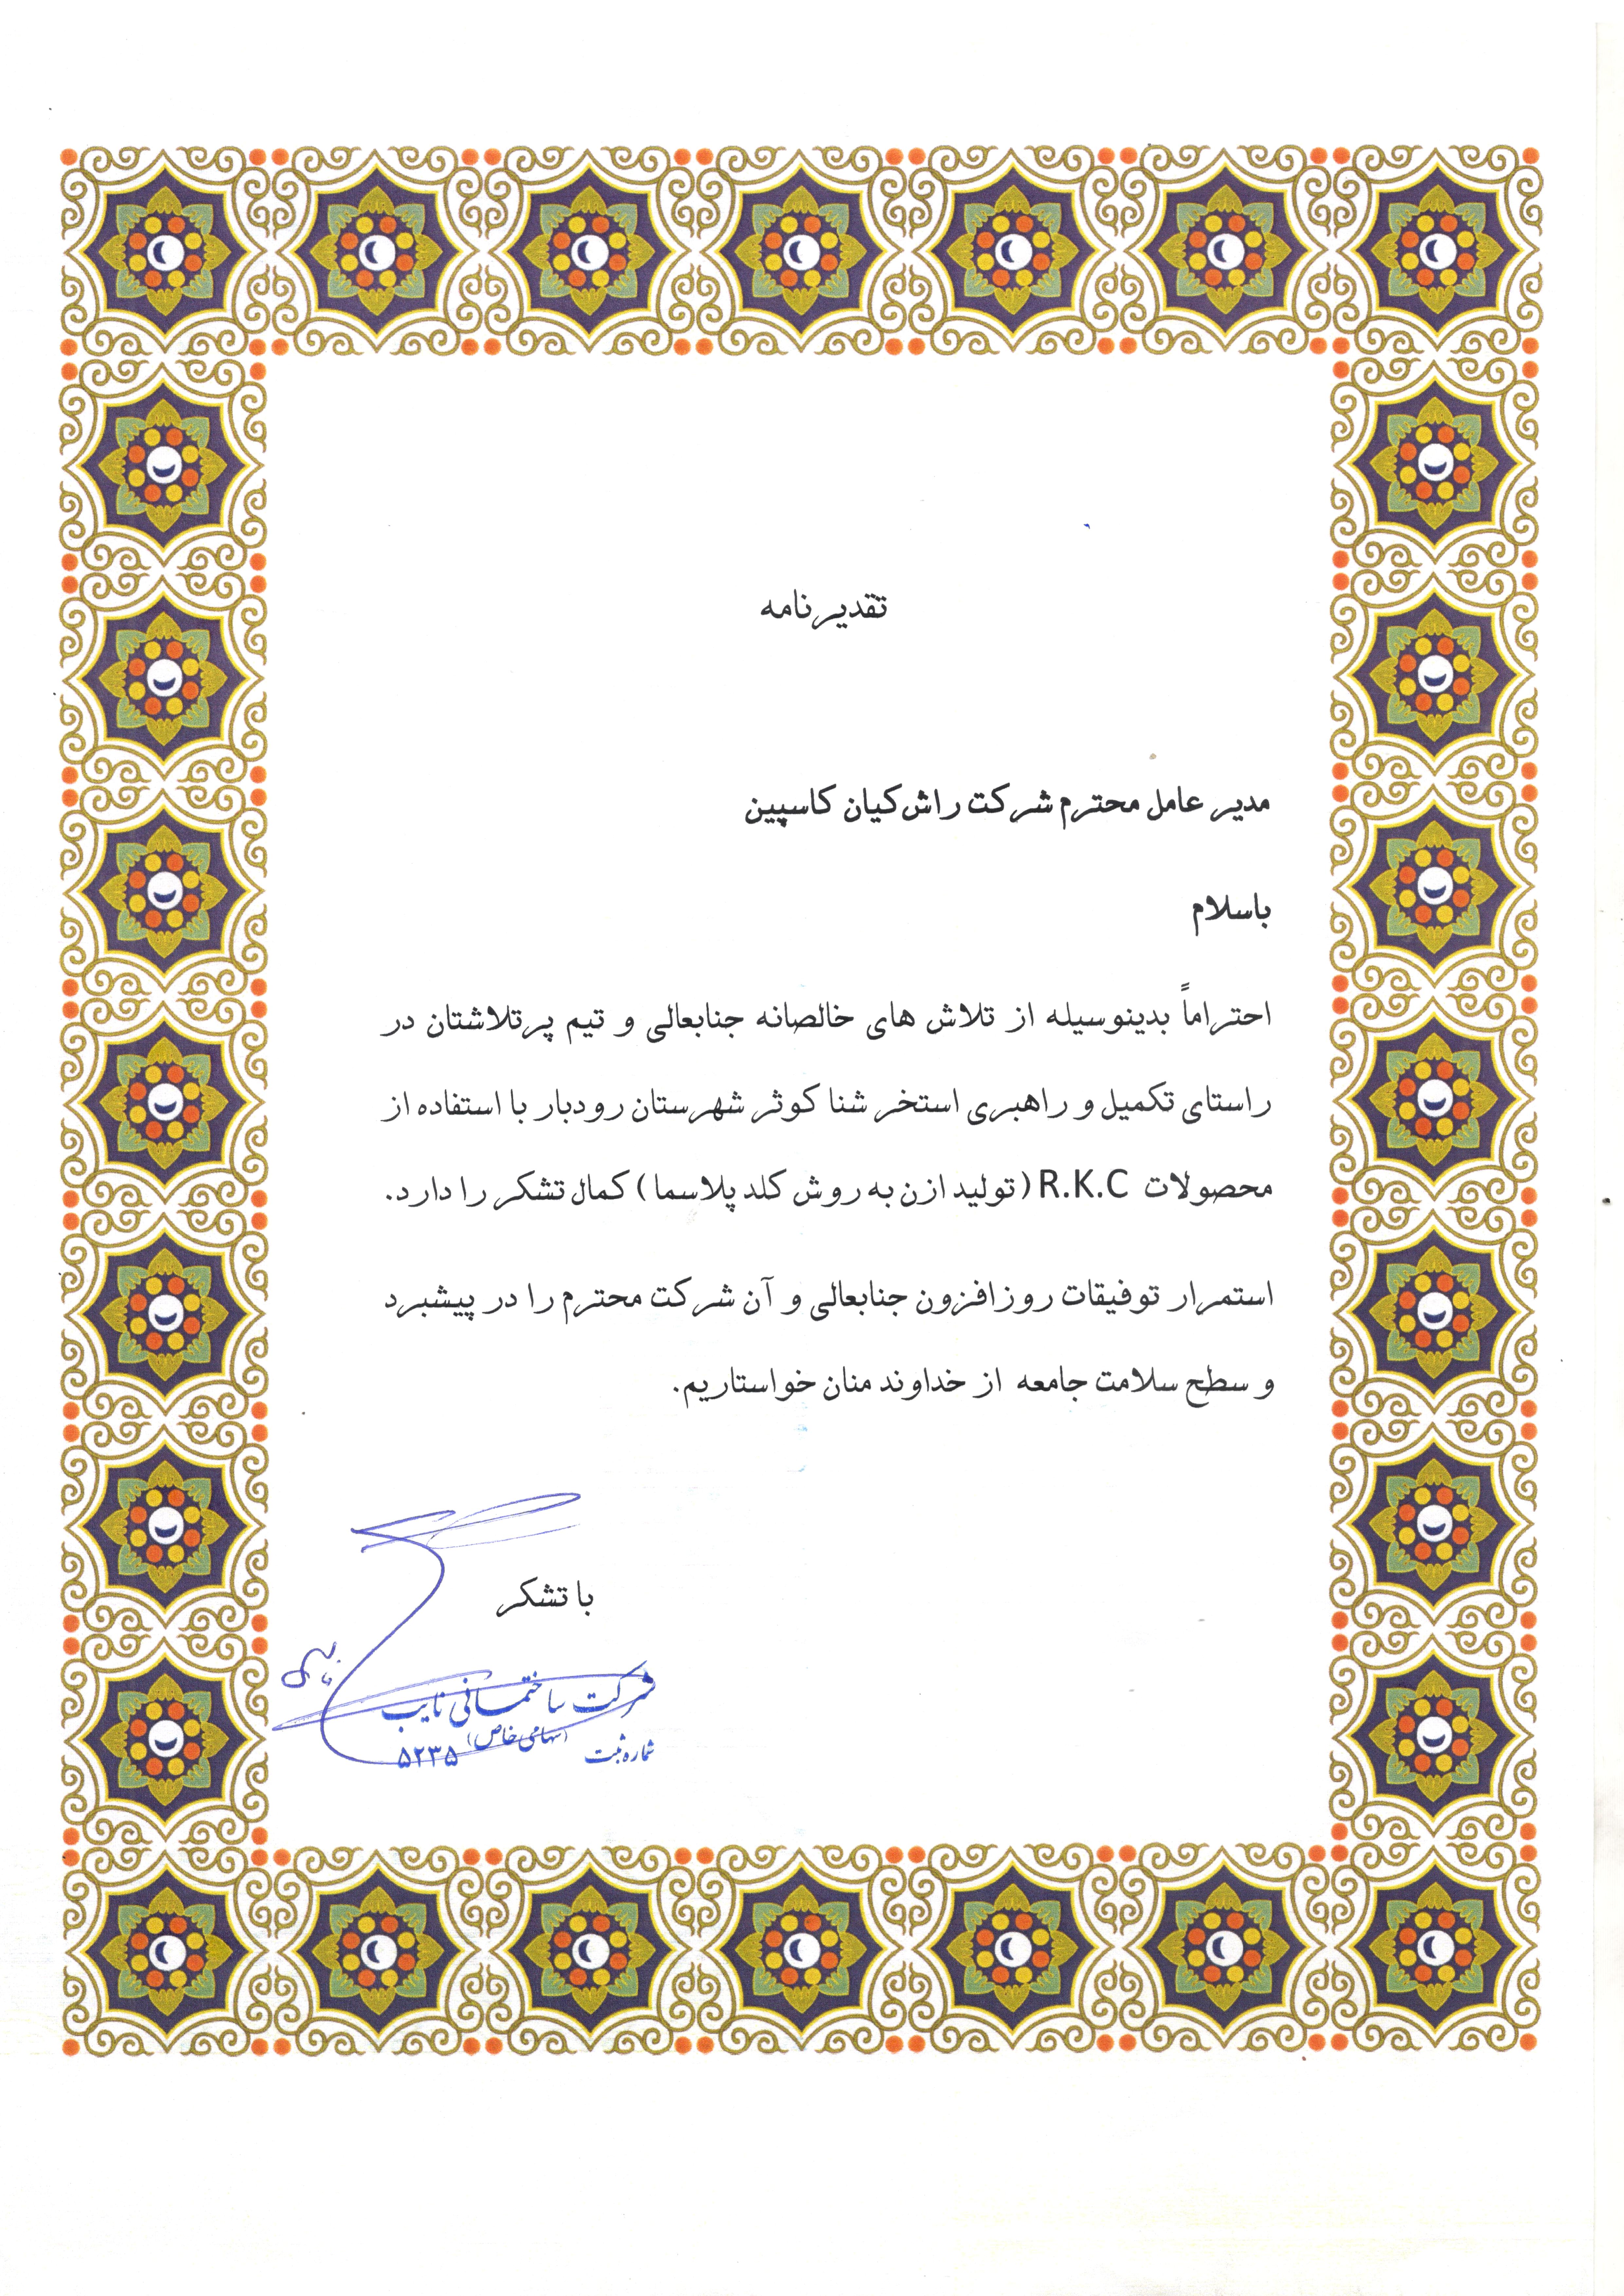 تقدیرنامه
مدیر عامل محترم شرکت راش کیان کاسپین
باسلام
احتراماً بدینوسیله از تلاش های خالصانه جنابعالی و تیم پرتلاشتان در
راستای تکمیل و راهبری استخر شنا کوثر شهرستان رودبار با استفاده از
محصولات R.K.C (تولید ازن به روش کلد پلاسما) کمال تشکر را دارد.
استمرار توفیقات روزافزون جنابعالی و آن شرکت محترم را در پیشبرد
و سطح سلامت جامعه از خداوند منان خواستاریم.
با تشکر
شرکت ساختمانی نایب
(سهامی خاص)
شماره ثبت ۵۲۳۵